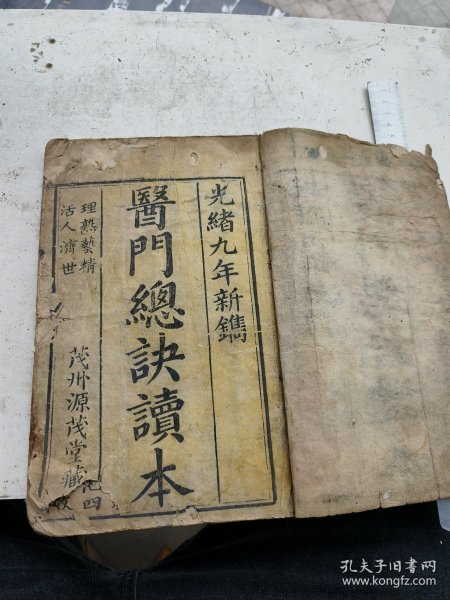 光緒九年新鐫
醫門總訣讀本
理熟藝精
活人濟世
茂州源茂堂藏
孔夫子旧书网
www.kongfz.com